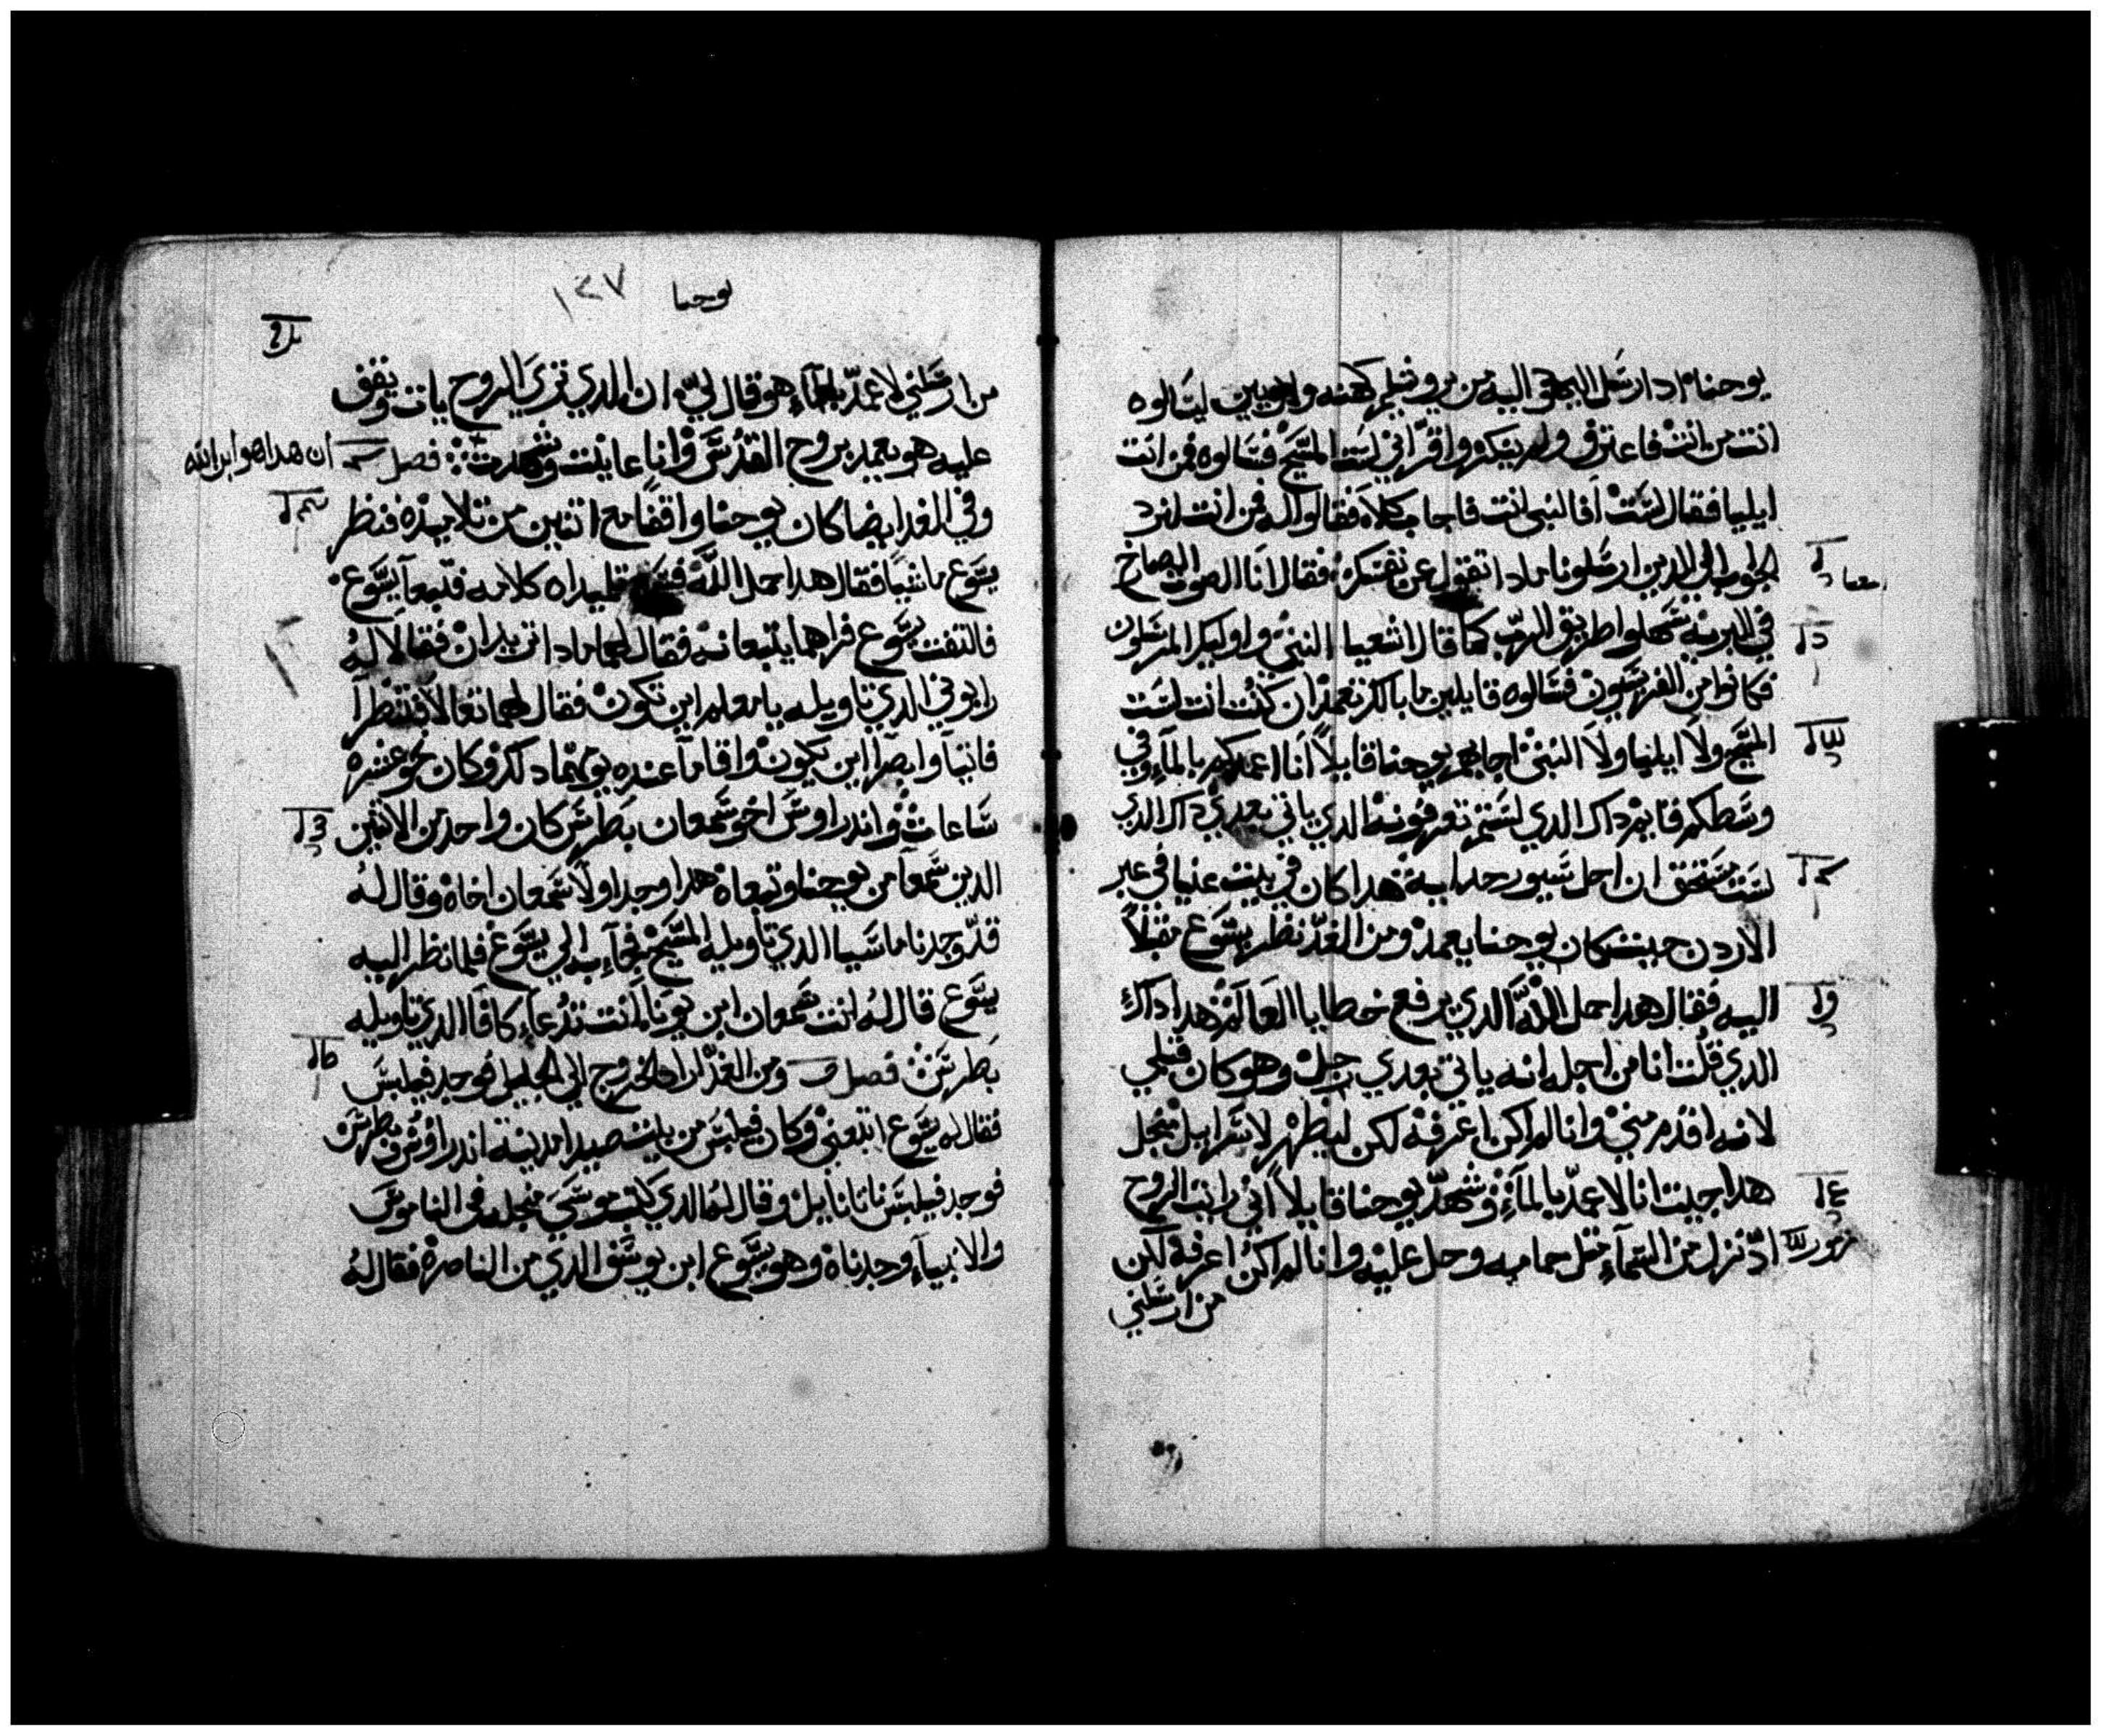 يوحنا اد ارسل اليهود اليه من يروشليم كهنه ولاويين ليسالوه
انت من انت فاعترف ولم ينكر واقر اني لست المسيح فسالوه فمن انت
ايليا فقال لست افالنبي انت فاجاب كلا فقالوا له فمن انت لنرد
الجواب الي الدين ارسلونا مادا تقول عن نفسك فقال انا الصوت الصارخ
في البريه سهلوا طريق الرب كما قال اشعيا النبي واوليك المرسلون
فكانوا من الفريسيون فسالوه قايلين ما بالك تعمد ان كنت انت لست
المسيح ولا ايليا ولا النبي اجابهم يوحنا قايلا انا اعمدكم بالمآء وفي
وسطكم قايم داك الدي لستم تعرفونه الدي ياتي بعدي داك الدي
لست مستحق ان احل سيور حدايه هدا كان في بيت عنيا في عبر
الاردن حيث كان يوحنا يعمد ومن الغد نظر يسوع مقبلا
اليه فقال هدا حمل الله الدي يرفع خطايا العالم هدا داك
الدي قلت انا من اجله انه ياتي بعدي رجل وهو كان قبلي
لانه اقدم مني وانا لم اكن اعرفه لكن ليظهر لاسرايل منجل
هدا جيت انا لاعمد بالمآء وشهد يوحنا قايلا اني رايت الروح
اد نزل من السمآء متل حمامه وحل عليه وانا لم اكن اعرفه لكن
من ارسلني
يوحنا
١٢٧
من ارسلني لاعمد بالمآء هو قال لي ان الدي تري الروح يات ويقف
عليه هو يعمد بروح القدس وانا عاينت وشهدت فصل
ان هدا هو ابن الله
وفي الغد ايضا كان يوحنا واقفا مع اتنين من تلاميده فنظر
يسوع ماشيا فقال هدا حمل الله تلميداه كلامه فتبعا يسوع
فالتفت يسوع فراهما يتبعانه فقال لهما مادا تريدان فقالا له
رابوني الدي تاويله يا معلم اين تكون فقال لهما تعالا فتنظرا
فاتيا وابصرا اين يكون واقاما عنده يومهما دلك وكان نحو عشره
ساعات واندراوس اخو سمعان بطرس كان واحد من الاتنين
الدين سمعا من يوحنا وتبعاه هدا وجد اولا سمعان اخاه وقال له
قد وجدنا ماسيا الدي تاويله المسيح فجآء به الي يسوع فلما نظر اليه
يسوع قال له انت سمعان ابن يونا انت تدعآء كافا الدي تاويله
بطرس فصل ومن الغد اراد الخروج الي الجليل فوجد فيلبس
فقال له يسوع اتبعني وكان فيلبس من بيت صيدا مدينة اندراوس وبطرس
فوجد فيلبس ناتانايل وقال له الدي كتب موسي منجله في الناموس
والانبيآء وجدناه وهو يسوع ابن يوسف الدي من الناصره فقال له